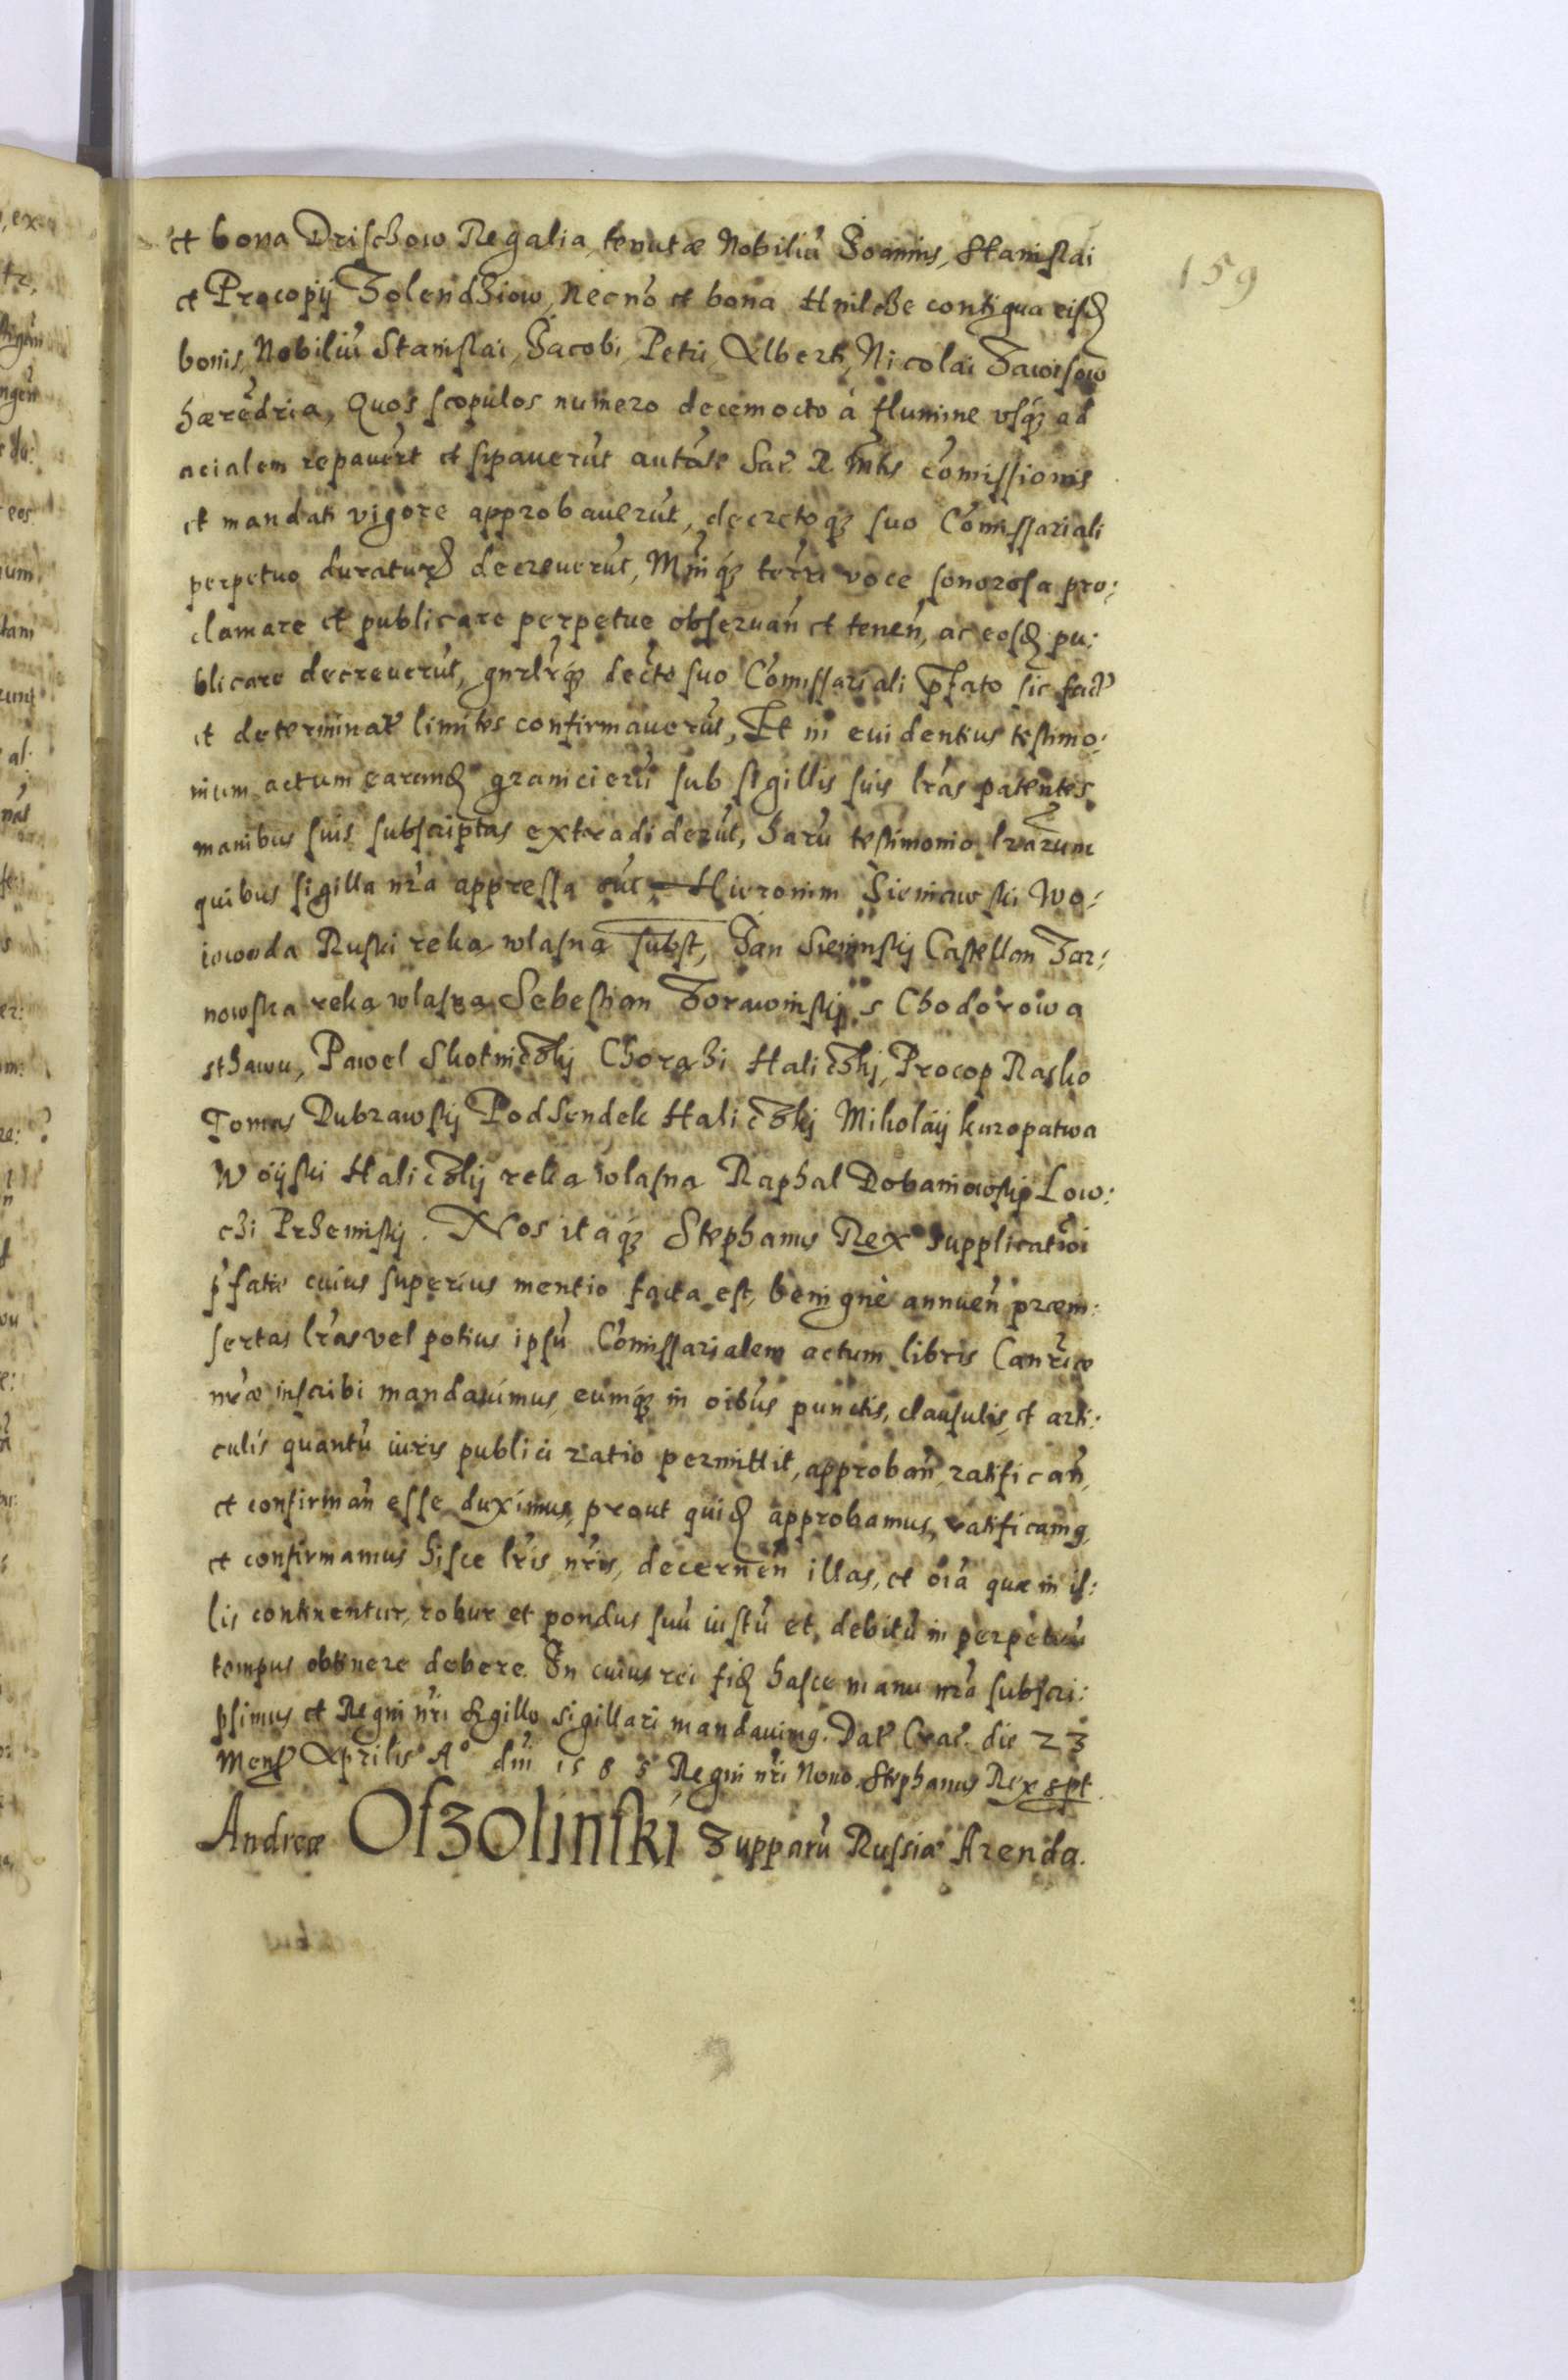 159
et bona Drischow Regalia, tenutæ Nobiliū Joannis, Stanislai
et Procopij Zolendziow, Necnō et bona Hnilcze contigua eisd
bonis, Nobiliū Stanislai, Jacobi, Petri, Alberti, Nicolai Zawisow
hæredria, Quos scopulos numero decemocto à flumine vsq; ad
acialem repauert et sipauerūt autāte Sac R Mtis cōmissionis
et mandati vigore approbauerūt, decretoq; suo Cōmissariali
perpetuo duratur decreuerūt, Minq; terri voce sonorosa pro:
clamare et publicare perpetue obseruan̄ et tenen̄, ac eosd pu:
blicare decreuerūt, gnrlrq; decto suo Cōmissariali pfato sic fact
et determinat limites confirmauerūt, Et in euidentius testimo:
nium actum earund granicierū sub sigillis suis lrās patentes
manibus suis subscriptas extradiderūt, harū testimonio lrārum
quibus sigilla nrā appressa sūt, Hieronim Sieniawski Wo:
iowoda Ruski reka wlasna subst, Jan Sieninskij Castellan Zar:
nowska reka wlasna Sebestian Zorawinskij s Chodorowa
sthawu, Pawel Skotniczkij Chorazi Haliczkij, Procop Rasko
Tomas Dubrawskij Podsendek Haliczkij Mikolaij kuropatwa
Woijski Haliczkij reka wlasna Raphal Dobaniowskij Low:
chi Przemiskij. Nos itaq; Stephanus Rex supplicatioi
pfatæ cuius superius mentio facta est, benignè annuen̄ præin:
sertas lrās vel potius ipsū Cōmissarialem actum libris Canriæ
nrǣ inscribi mandauimus, eumq; in oibūs punctis, clausulis, et arti:
culis quantū iuris publici ratio permittit, approban̄, ratifican̄,
et confirman̄ esse duximus, prout quid approbamus, ratificamg,
et confirmamus hisce lrīs nrīs, decernen̄ illas, et oīa quæ in il:
lis continentur, robur et pondus suū iustū et debitū in perpetuū
tempus obtinere debere. In cuius rei fid hasce manu nrā subscri:
psimus et Regni nrī sigillo sigillari mandauimg. Dat Crac. die 23
Mens Aprilis Aº dni 1585 Regni nrī Nono. Stephanus Rex spt.
Andreæ Ossolinski Zupparū Russiæ Arenda.